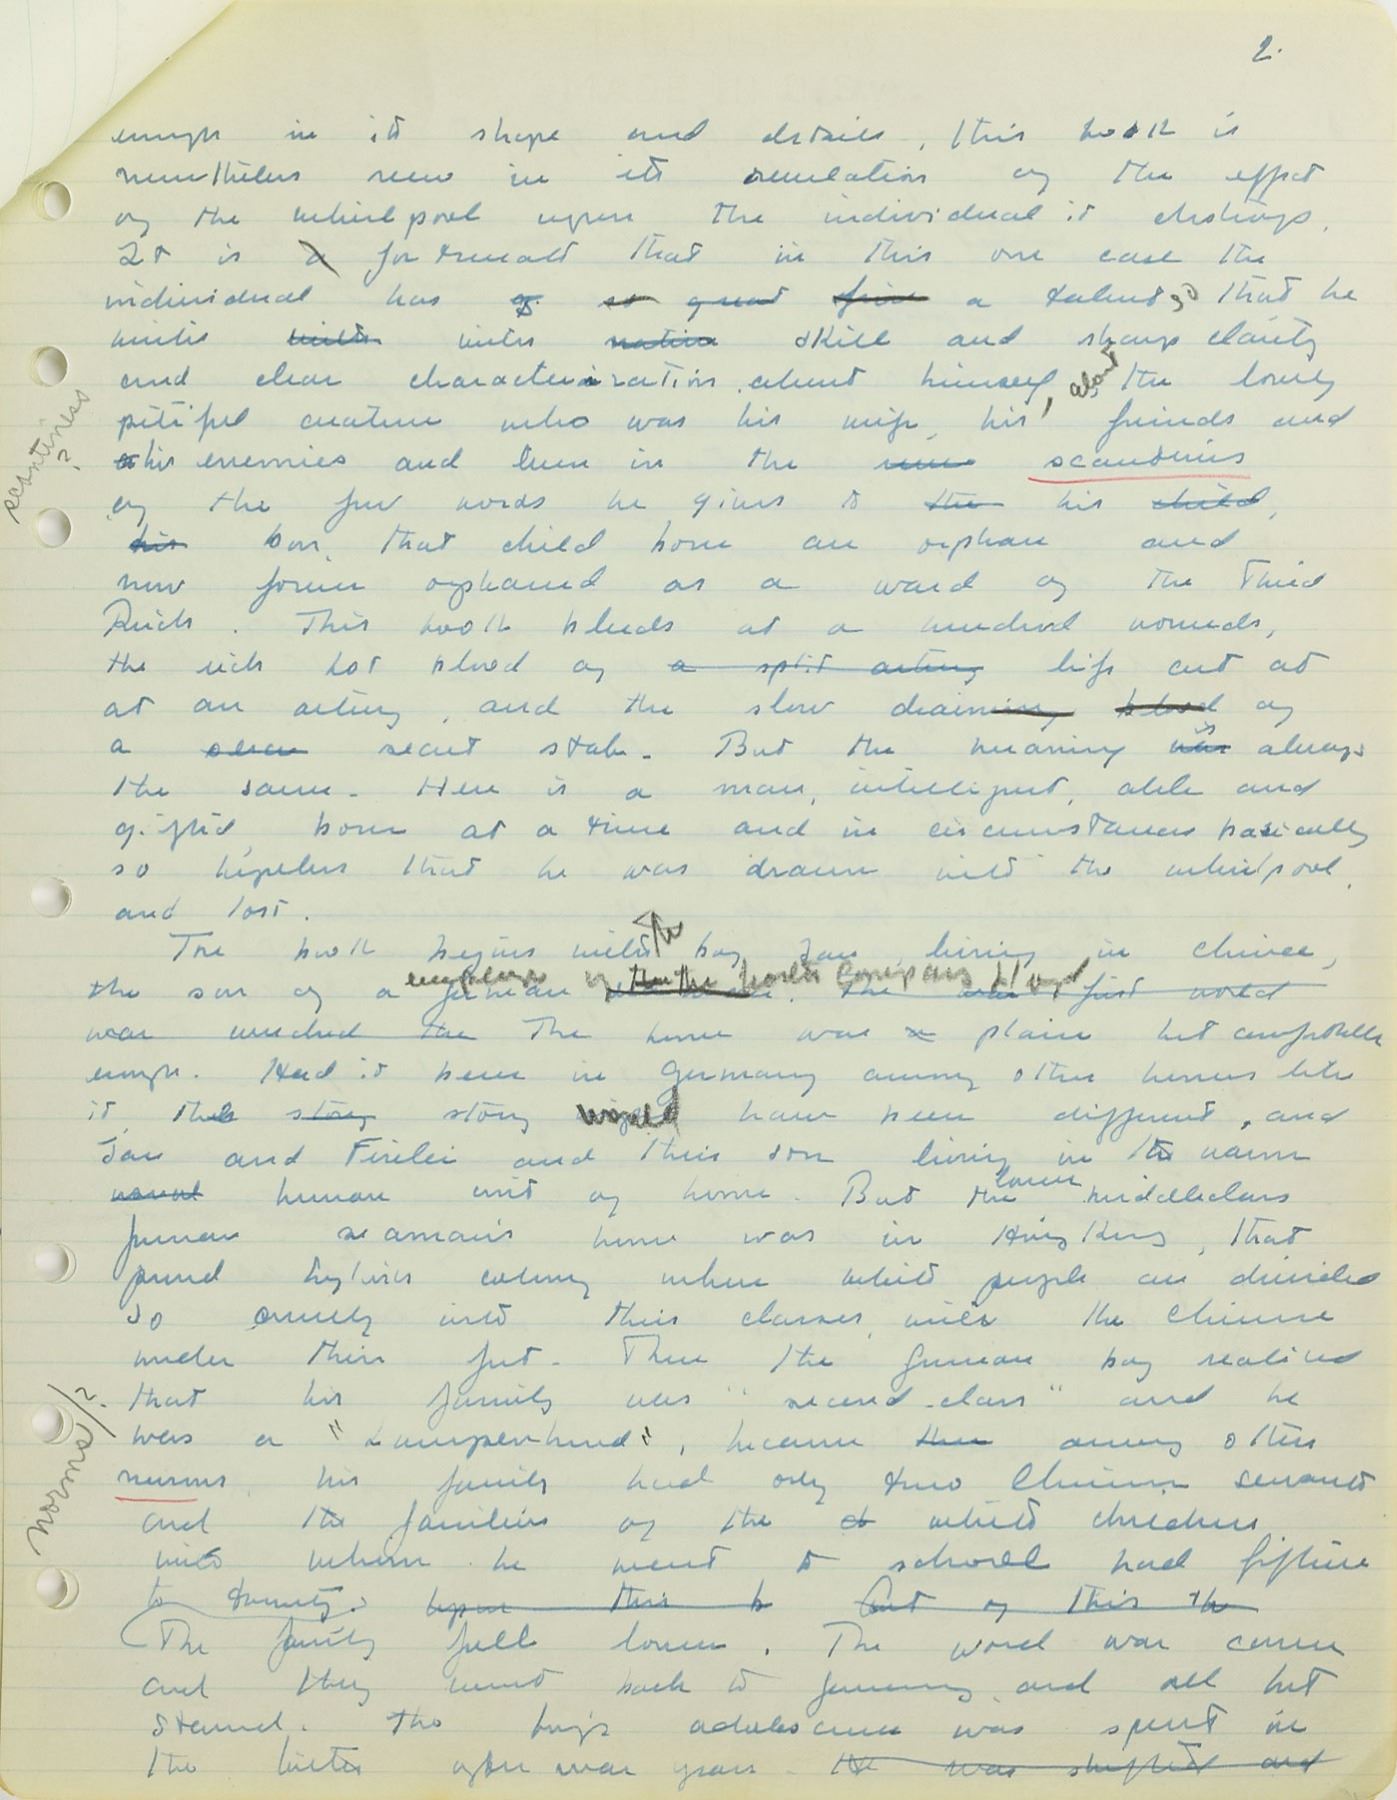 2.
enough in its shape and details, this book is
nevertheless new in its revelation of the effect
of the whirlpool upon the individual it destroys.
It is a fortunate that in this one case the
individual has of so great fine a talent so that he
writes with writes native skill and sharp clarity
and clear characterization about himself, about the lonely
pitiful creature who was his wife, his friends and
his enemies and even in the scantiness
scantiness?
of the few words he gives to the his child,
his son, that child born an orphan and
now forever orphaned as a ward of the Third
Reich. This book bleeds at a hundred wounds,
the rich hot blood of a split artery life cut at
at an artery, and the slow draining blood of
a secret stab. But the meaning was is always
the same. Here is a man, intelligent, able and
gifted, born at a time and in circumstances basically
so hopeless that he was drawn into the whirlpool
and lost.
The book begins with the boy Jan living in China,
the son of a German employee of the the North Company Lloyd. The first world
war wrecked the The home was a plain but comfortable
enough. Had it been in Germany among other homes like
it, the story story would have been different, and
Jan and Firilei and their son living in the warm
usual human unit of home. But the lower middleclass
German seaman's home was in Hong Kong, that
proud English colony where white people are divided
so cruelly into their classes, with the Chinese
under their feet. There the German boy realized
that his family was "second-class" and he
was a "Lumpenhund", because the among other
norms
norms/?
his family had only two Chinese servants
and the families of the white children
with whom he went to school had fifteen
to twenty. Upon this b Out of this the
The family fell lower. The world war came
and they went back to Germany and all but
starved. The boy's adolescence was spent in
the bitter after war years. He was shifted and